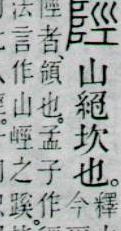 陘 山絕坎也。釋
今
陘者、領也。孟子作
法言作山𡷨之蹊。